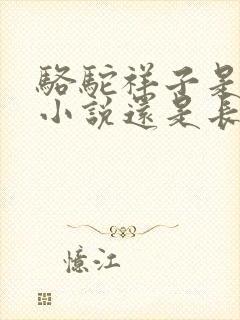 駱駝祥子是
小說還是長
憶江